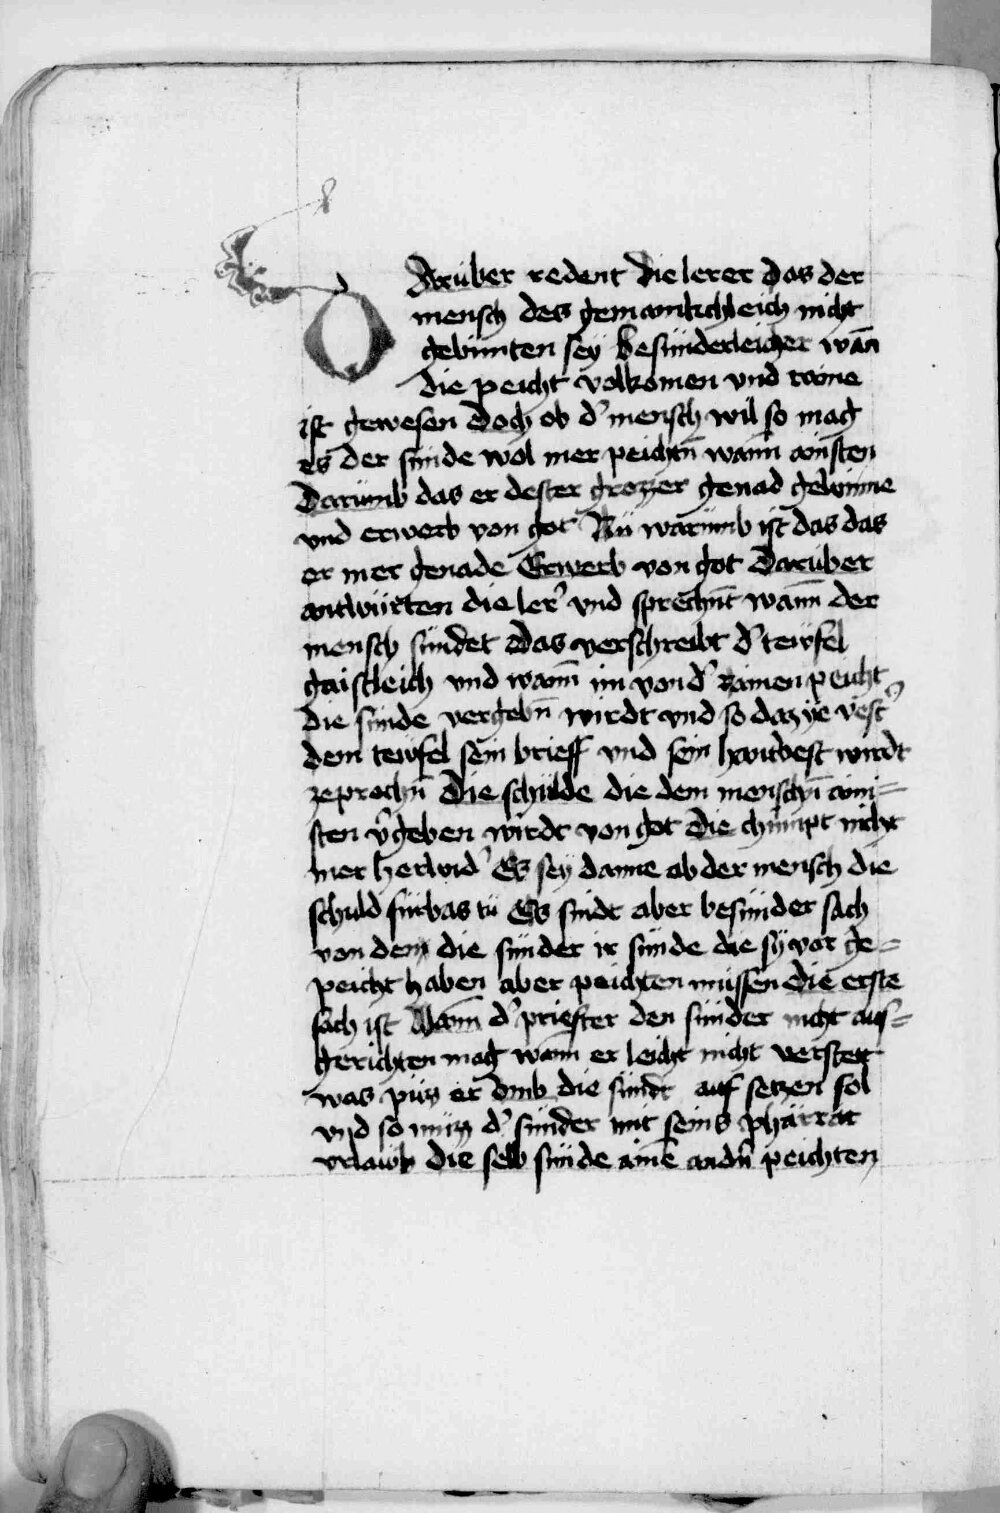 Darüber redent die lerer das der
mensch des gemainkchleich nicht
gebünten sey besünderleicher wañ
die peicht volkomen vnd raine
ist gewesen Doch ob d' mensch wil so mag
es der sünde wol mer peichtñ wann ainsten
Darümb das er dester grozzer genad gewinne
vnd erwerb von got Nü warümb ist das das
er mer genade Erwerb von got Darüber
antwürten die ler' vnd sprechñt wann der
mensch sündet das verschreibt d' teüfel
gaistleich vnd wann im von d' rainen peicht
die sünde vergebñ wirdt vnd so
dem teüfel sein brieff vnd sein hantvest wirdt
zeprochñ Die schülde die dem menschñ aini=
sten v'geben wirdt von got die chümpt nicht
mer herwid' Es sey danne ob der mensch die
schuld fürbas tü Es sindt aber besünder sach
von dem die sünder ir sünde die sy vor ge=
peicht haben aber peichten müssen Die erste
sach ist Wann d' priester den sünder nicht aus=
gerichten mag wann er leicht nicht verstett
was püs er vmb die sündt auf setzen sol
vnd so müz d' sünder mit seins pharrär
vrlawb die selb sünde aine andñ peichten